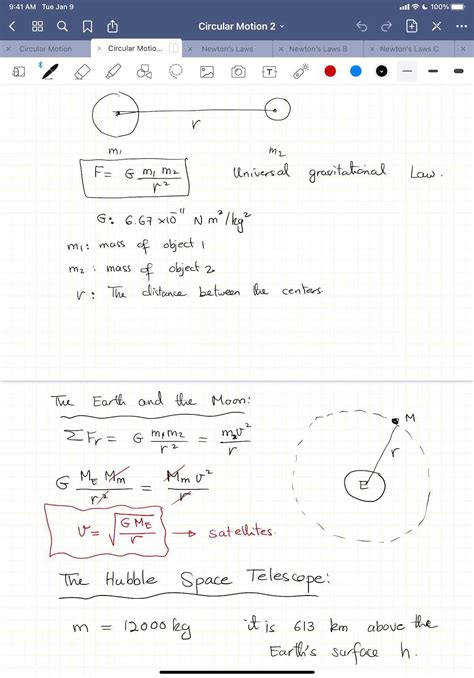 9:41 AM Tue Jan 9 100%
Circular Motion 2
Circular Motion Circular Motio... Newton's Laws Newton's Laws B Newton's Laws C
r
m₁ m₂
F = G m₁ m₂ / r² Universal gravitational Law.
G: 6.67 x10⁻¹¹ N m²/kg²
m₁: mass of object 1
m₂: mass of object 2
r: The distance between the centers.
The Earth and the Moon:
M
ΣFr = G m₁m₂ / r² = m₂v² / r
r
G M_E M_m / r² = M_m v² / r
E
v = √(G M_E / r) → satellites.
The Hubble Space Telescope:
m = 12000 kg it is 613 km above the
Earth's surface h.